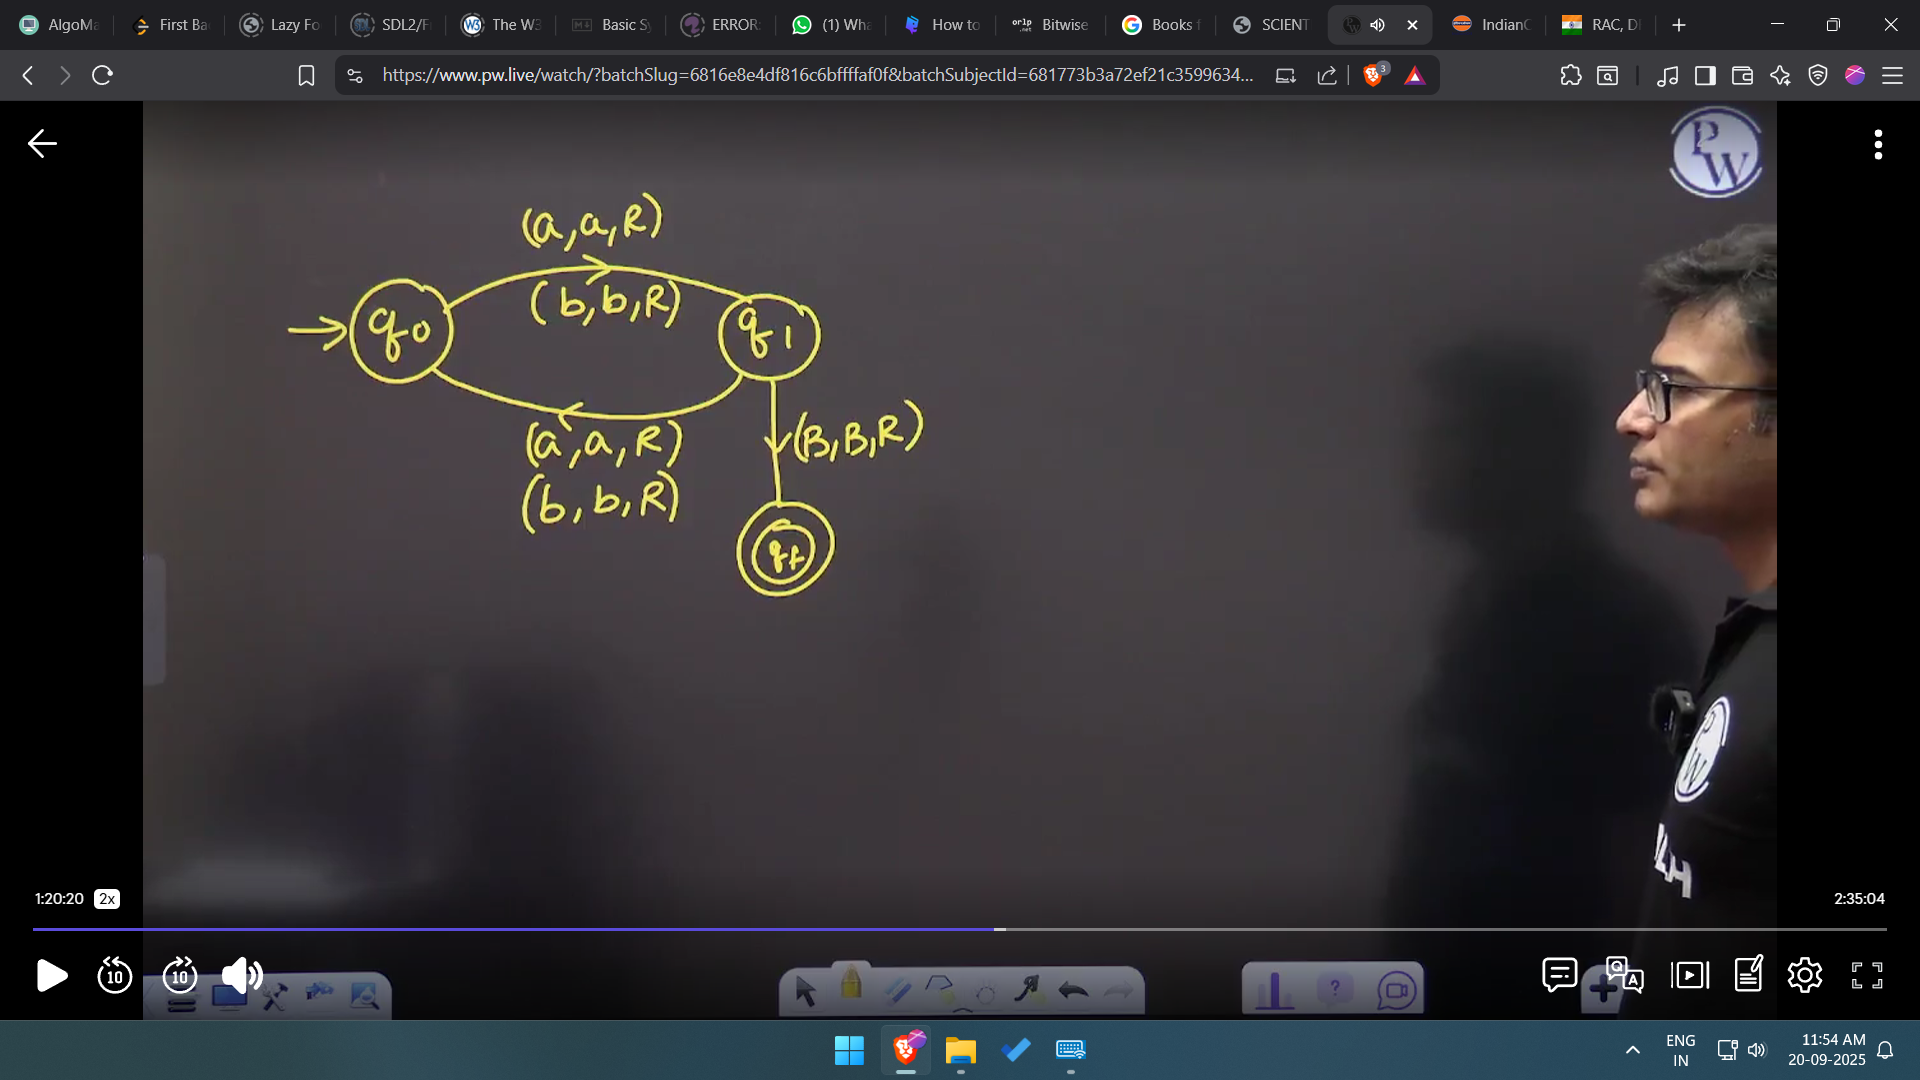 AlgoMa
First Ba
Lazy Fo
SDL2/F
The W3
Basic Sy
ERROR:
(1) Wha
How to
orlp .net
Bitwise
Books f
SCIENT
IndianC
RAC, D
https://www.pw.live/watch/?batchSlug=6816e8e4df816c6bffffaf0f&batchSubjectId=681773b3a72ef21c3599634...
3
PW
(a,a,R)
(b,b,R)
q0
q1
(a,a,R)
(b,b,R)
(B,B,R)
qf
PW
1:20:20
2x
2:35:04
10
10
Q
A
ENG
IN
11:54 AM
20-09-2025